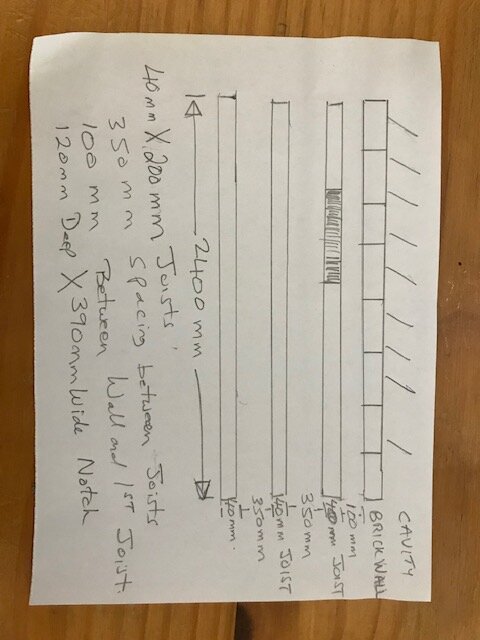 CAVITY
BRICK WALL
100 mm
40 mm JOIST
350 mm
40 mm JOIST
350 mm
40 mm.
2400 mm
40mm X 200mm Joists,
350 mm spacing between Joists
100 mm Between Wall and 1ST Joist
120mm Deep X 390mm Wide Notch